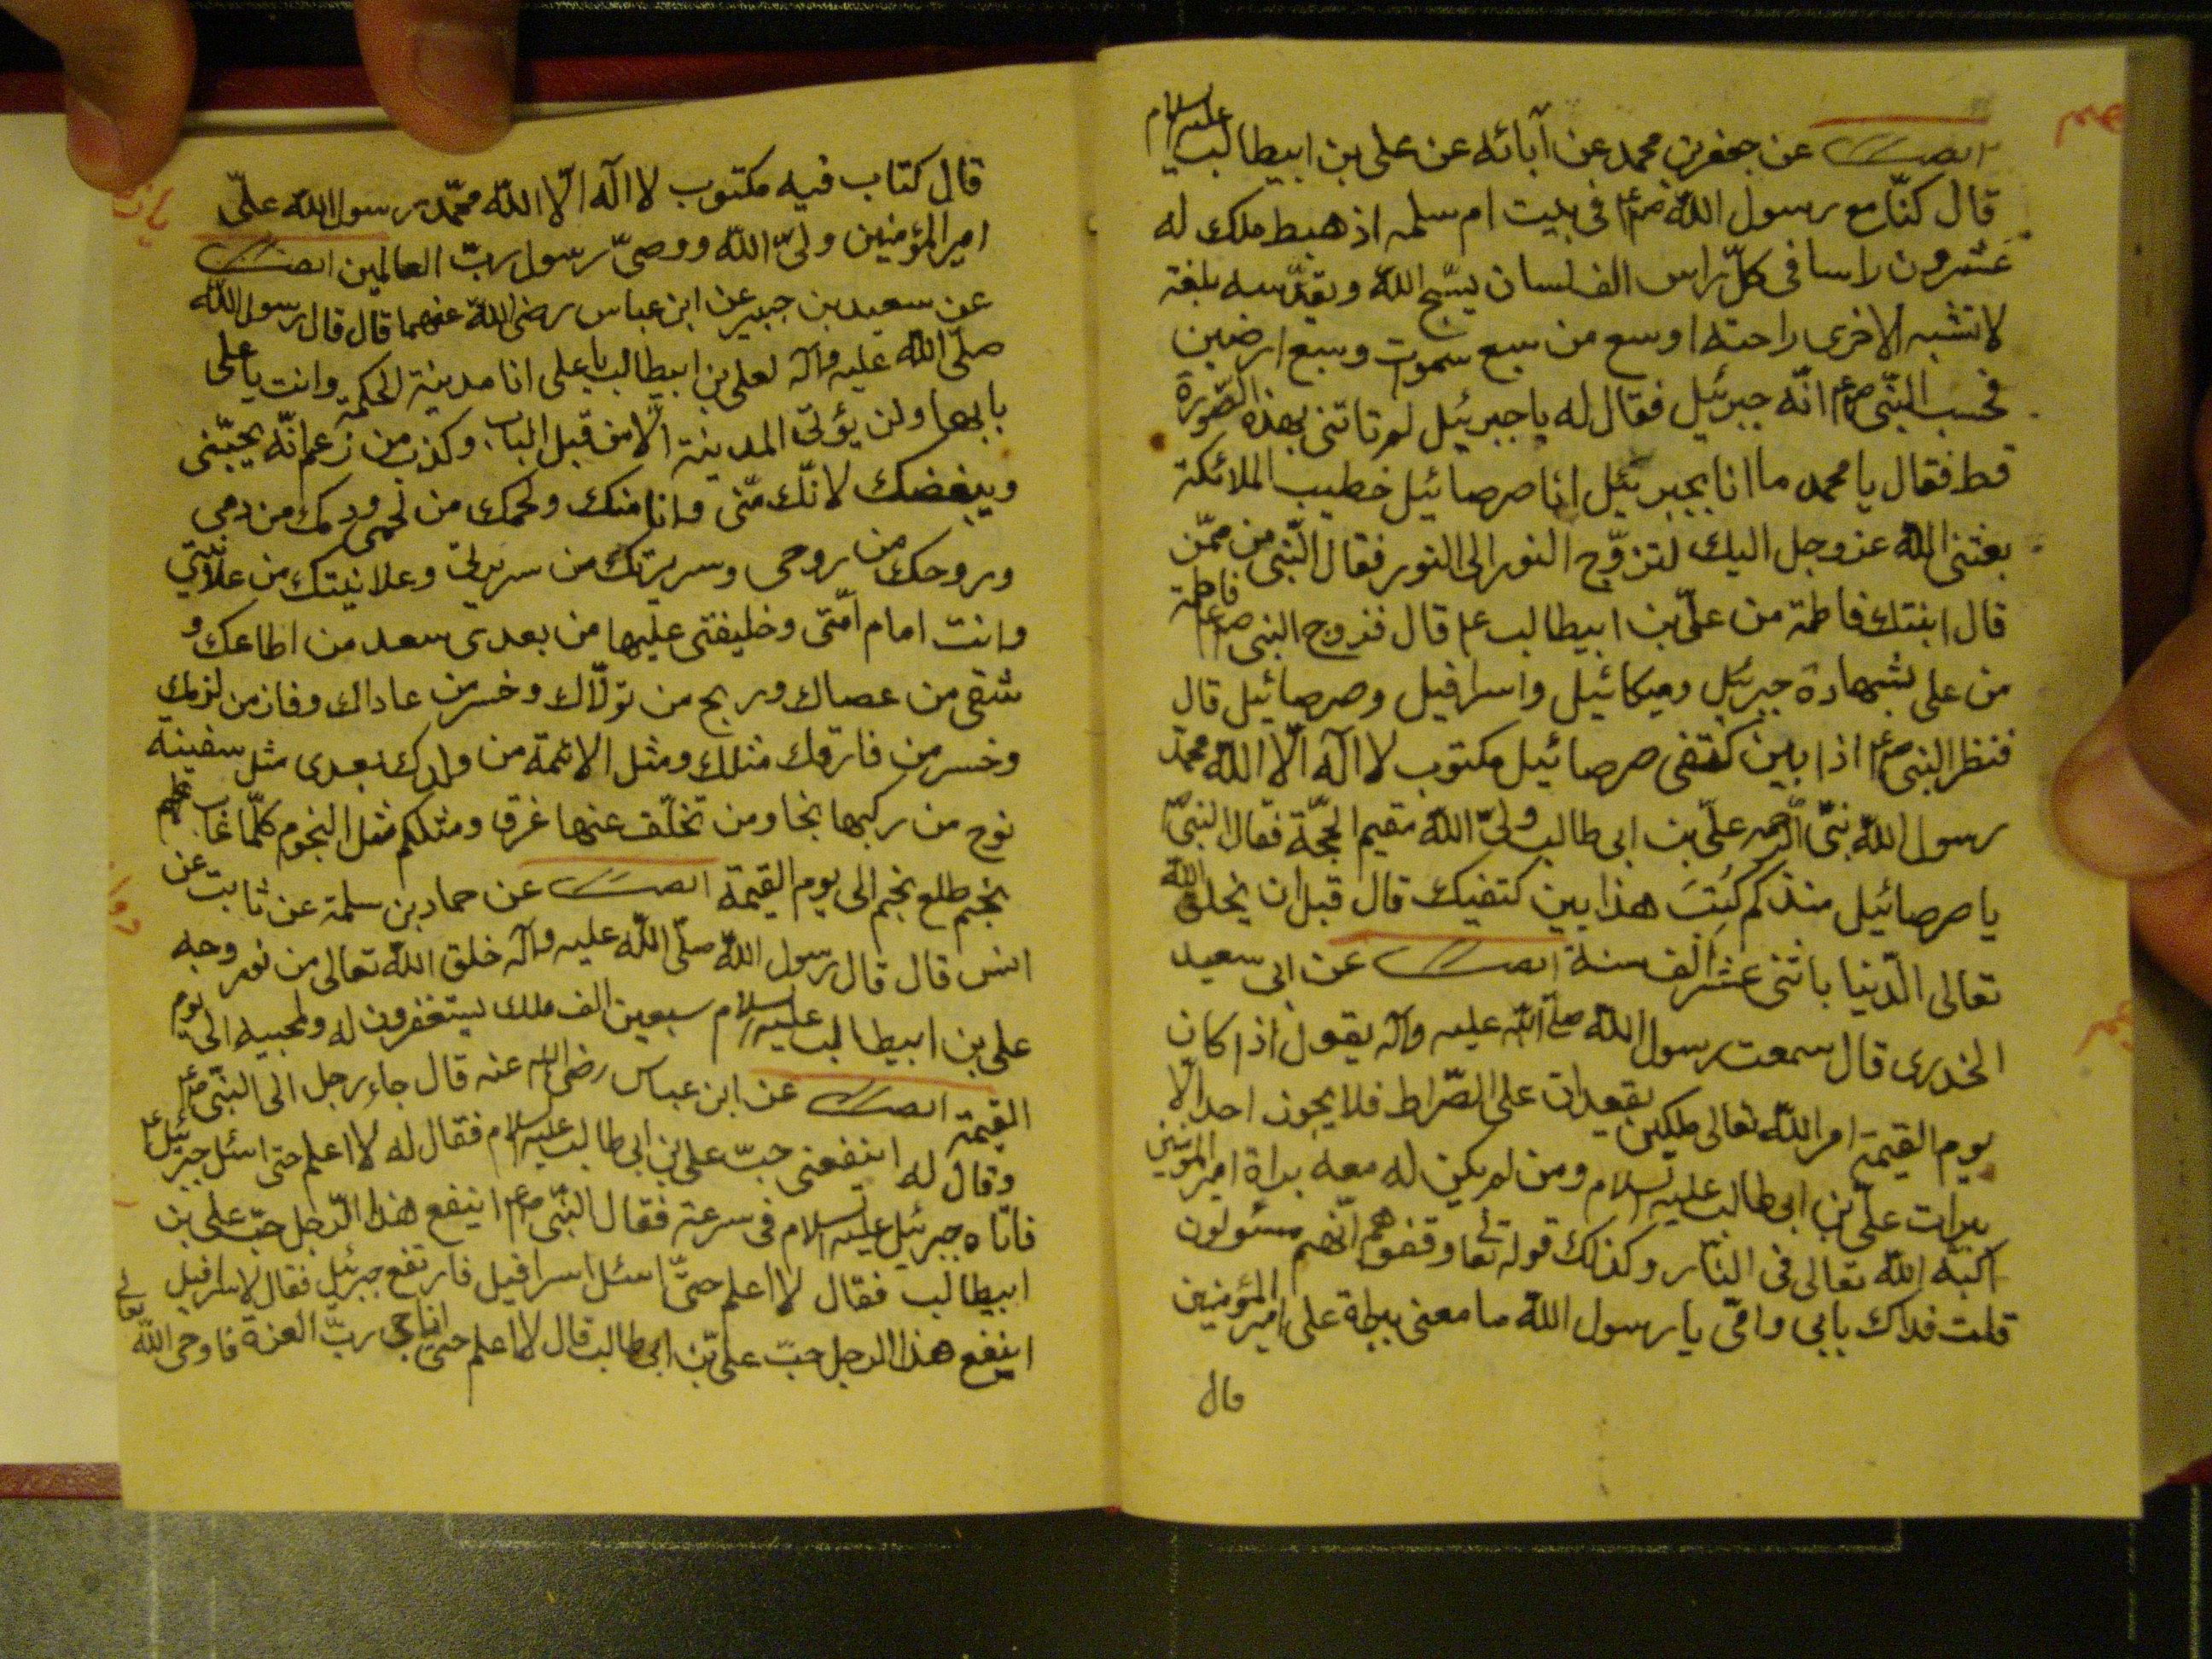 عن جعفر بن محمد عن آبائه عن على بن ابيطالب عليه السلام
قال كنّا مع رسول الله صلعم فى بيت ام سلمه اذ هبط ملك له
عشرون راسا فى كلّ راس الف لسان يسّبح الله ويقدّسه بلغة
لا تشبه الاخرى راحته اوسع من سبع سموت وسبع ارضين
فحسب النبّى صلعم انّه جبرئيل فقال له يا جبرئيل لم تاتنى بهذه الصّورة
قط فقال يا محمد ما انا بجبرئيل انا صرصائيل خطيب الملائكة
بعثنى الله عز وجل اليك لتزوّج النور الى النور فقال النّبى من ممّن
قال ابنتك فاطمة من علىّ بن ابيطالب ع قال فزوج النبى صلعم فاطمة
من على بشهادة جبرئيل وميكائيل واسرافيل وصرصائيل قال
فنظر النبى صلعم اذا بين كتفى صرصائيل مكتوب لا اله الّا الله محمّد
رسول الله نبّى الرّحمه علىّ بن ابى طالب ولىّ الله مقيم الحجّة فقال النبىّ
يا صرصائيل منذكم كُتِبَ هذا بين كتفيك قال قبل ان يخلق الله
تعالى الدّنيا باثنى عشر الف سنة عن ابى سعيد
الخدرى قال سمعت رسول الله صلّى الله عليه وآله يقول اذا كان
يوم القيمة امر الله تعالى ملكين يقعدان على الصّراط فلا يجوز احد الّا
ببرات علىّ بن ابى طالب عليه السلام ومن لم يكن له معه براة امير المؤمنين
اكبّه الله تعالى فى النّار وكذلك قوله تعا وقفوهم انّهم مسئولون
قلت فداك بابى وامّى يا رسول الله ما معنى براة على امير المؤمنين
قال
قال كتاب فيه مكتوب لا اله الّا الله محمّد رسول الله علىّ
امير المؤمنين ولىّ الله ووصىّ رسول ربّ العالمين
عن سعيد بن جبير عن ابن عباس رضى الله عنهما قال قال رسول الله
صلّى الله عليه وآله لعلى بن ابيطالب يا على انا مدينة الحكمة وانت يا على
بابها ولن يؤتى المدينة الّا من قبل الباب وكذب من زعم انّه يحبّنى
ويبغضك لانّك منّى وانا منك ولحمك من لحمى ودمك من دمى
وروحك من روحى وسريرتك من سريرتى وعلانيتك من علانيّتى
وانت امام امّتى وخليفتى عليها من بعدى سعد من اطاعك و
شقى من عصاك وربح من تولّاك وخسر من عاداك وفاز من لزمك
وخسر من فارقك مثلك ومثل الائمة من ولدك بعدى مثل سفينة
نوح من ركبها نجا ومن تخلّف عنها غرق ومثلكم مثل النجوم كلّما غاب
نجم طلع نجم الى يوم القيمة عن حماد بن سلمة عن ثابت عن
انس قال قال رسول الله صلّى الله عليه وآله خلق الله تعالى من نور وجه
على بن ابيطالب عليه السلام سبعين الف ملك يستغفرون له ولمحبيه الى يوم
القيمة عن ابن عباس رضى الله عنه قال جاء رجل الى النبّى صلعم
وقال له اينفعنى حبّ على بن ابى طالب عليه السلام فقال له لا اعلم حتى اسئل جبرئيل
فاتاه جبرئيل عليه السلام فى سرعة فقال النبّى صلعم اينفع هذا الرّجل حبّ على بن
ابيطالب فقال لا اعلم حتىّ اسئل اسرافيل فارتفع جبرئيل فقال لاسرافيل
اينفع هذا الرجل حبّ علىّ بن ابى طالب قال لا اعلم حتى اناجى ربّ العزة فاوحى الله تعالى